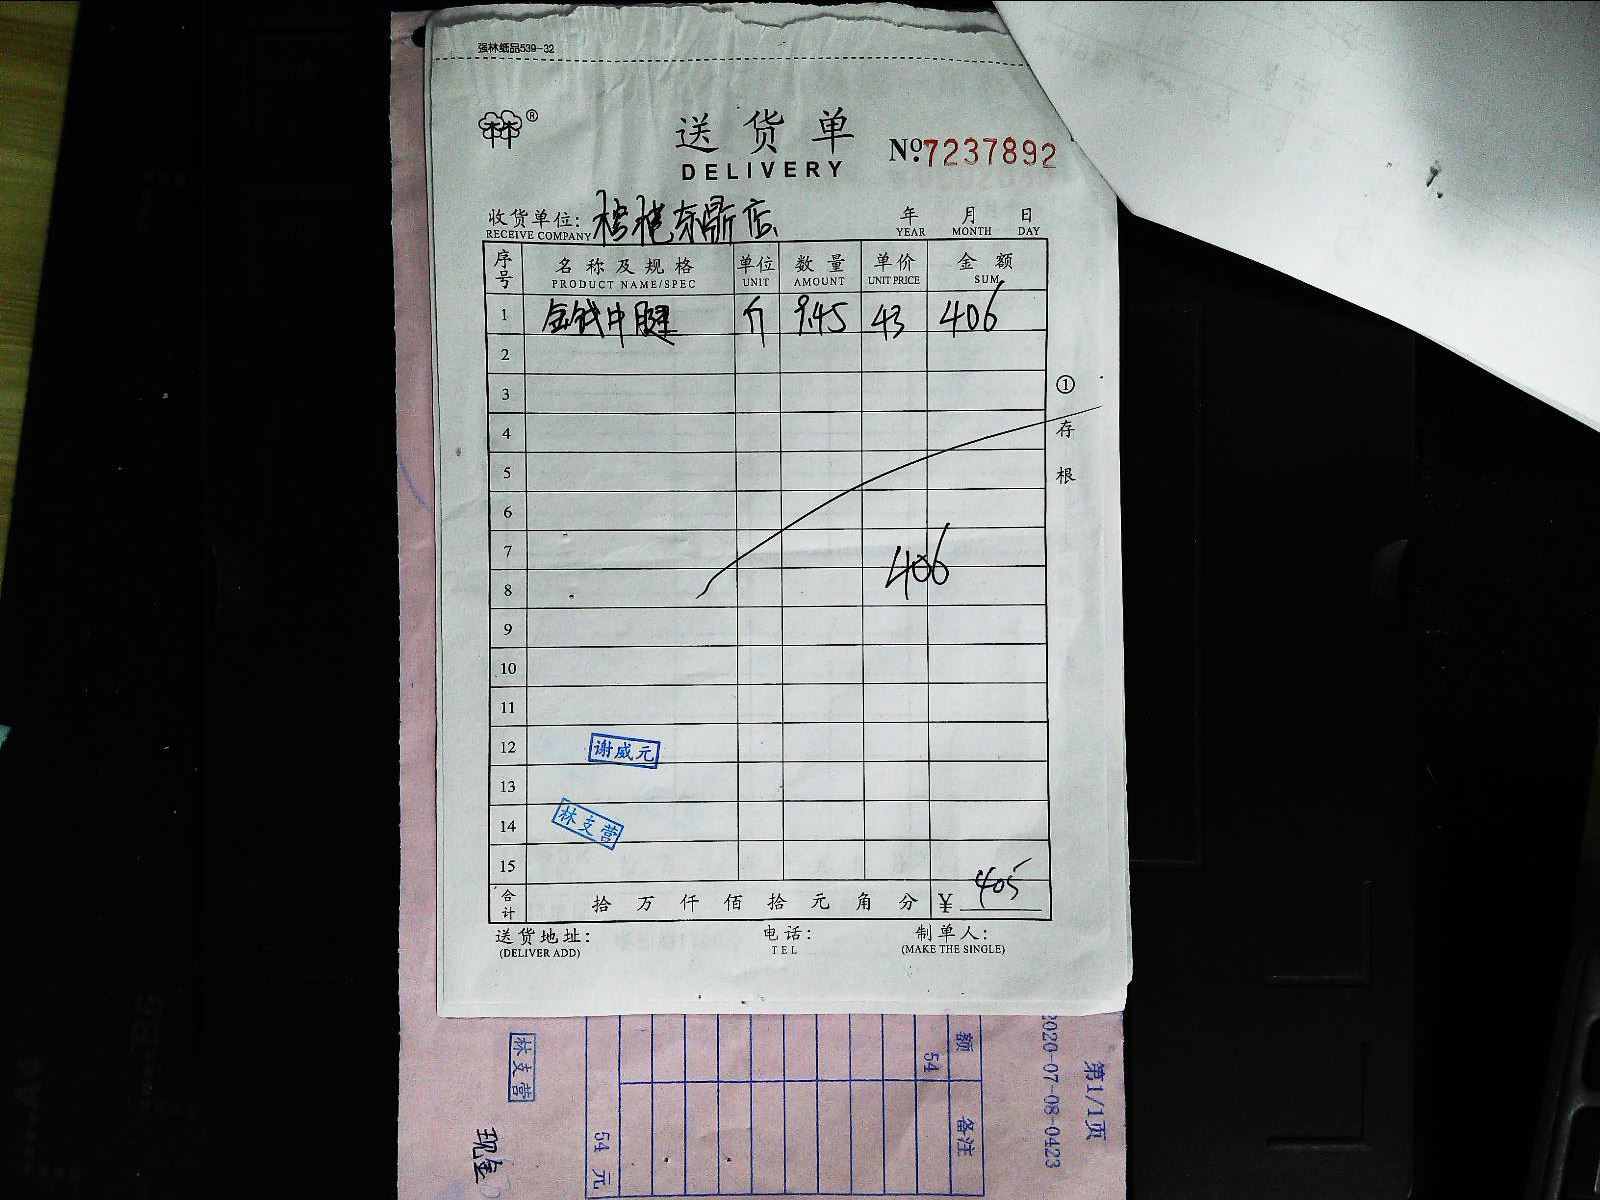 强林纸品539-32
林®
送货单
DELIVERY
Nº7237892
收货单位: 东鼎店
RECEIVE COMPANY
年 月 日
YEAR MONTH DAY
序号 名称及规格 单位 数量 单价 金额
PRODUCT NAME/SPEC UNIT AMOUNT UNIT PRICE SUM
1 金钱中腱 斤 9.45 43 406
2
3
4
5
6
7
8
406
9
10
11
12 谢威元
13
14 林支营
15
合计 拾万仟佰拾元角分 ¥ 405
送货地址: 电话: 制单人:
(DELIVER ADD) TEL (MAKE THE SINGLE)
①存根
第1/1页
2020-07-08-0423
额 备注
54
54 元
林支营
现金
A4
B5